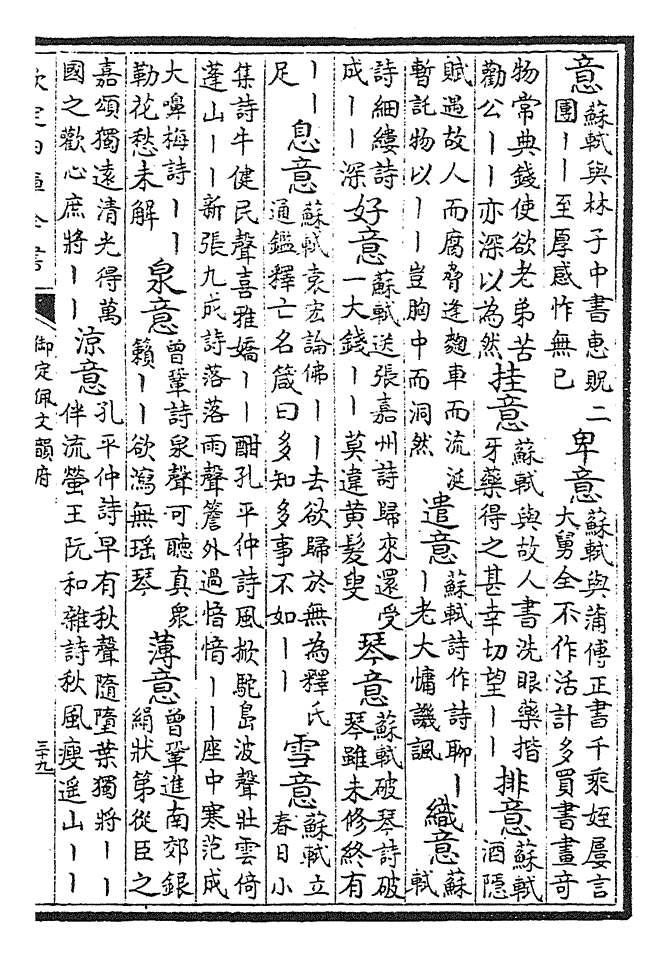 意
蘇軾與林子中書惠貺二
團丨丨至厚感怍無已
卑意
蘇軾與蒲傅正書千乘姪屢言
大舅全不作活計多買書畫奇
物常典錢使欲老弟苦
勸公丨丨亦深以為然
挂意
蘇軾與故人書洗眼藥揩
牙藥得之甚幸切望丨丨
排意
蘇軾
酒隱
賦遇故人而腐脅逢麴車而流涎
暫託物以丨丨豈胸中而洞然
遣意
蘇軾詩作詩聊丨
丨老大慵譏諷
織意
蘇
軾
詩細縷詩
成丨丨深
好意
蘇軾送張嘉州詩歸來還受
一大錢丨丨莫違黃髮叟
琴意
蘇軾破琴詩破
琴雖未修終有
丨丨
足
息意
蘇軾袁宏論佛丨丨去欲歸於無為釋氏
通鑑釋亡名箴曰多知多事不如丨丨
雪意
蘇軾立
春日小
集詩牛健民聲喜雅嬌丨丨酣孔平仲詩風掀駝島波聲壯雲倚
蓬山丨丨新張九成詩落落雨聲簷外過愔愔丨丨座中寒范成
大嗅梅詩丨丨
勒花愁未解
泉意
曾鞏詩泉聲可聽真衆
籟丨丨欲瀉無瑤琴
薄意
曾鞏進南郊銀
絹狀第從臣之
嘉頌獨遠清光得萬
國之歡心庶將丨丨
涼意
孔平仲詩早有秋聲隨墮葉獨將丨丨
伴流螢王阮和雜詩秋風瘦遥山丨丨
欽定四庫全書
御定佩文韻府
三十九